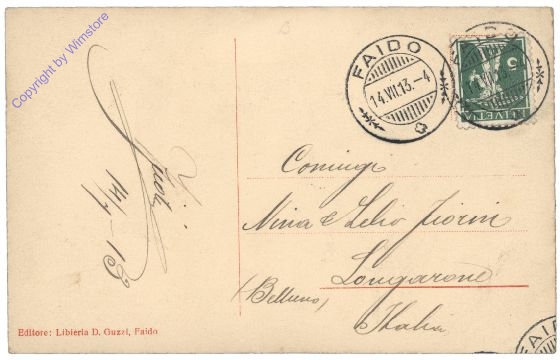 Copyright by Wimstore
FAIDO
14.VII.13.-4
HELVETIA
14/7-13
Coniugi
Nina e Lelio Fiorin
Longarone
(Belluno)
Italia
Editore: Libieria D. Guzzi, Faido
FAIDO